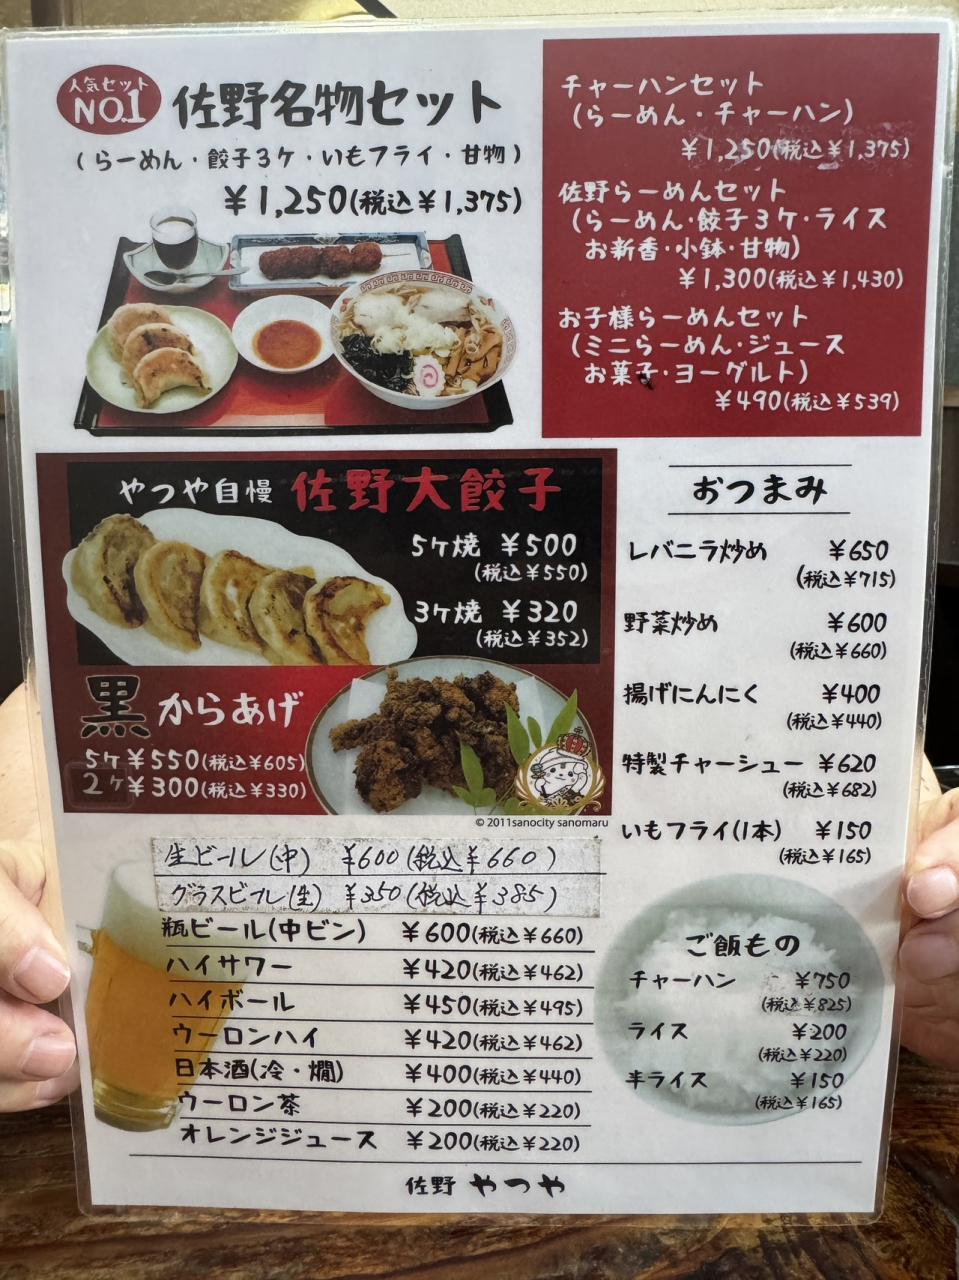 人気セット
NO.1
佐野名物セット
(らーめん・餃子3ケ・いもフライ・甘物)
¥1,250(税込¥1,375)
チャーハンセット
(らーめん・チャーハン)
¥1,250(税込¥1,375)
佐野らーめんセット
(らーめん・餃子3ケ・ライス
お新香・小鉢・甘物)
¥1,300(税込¥1,430)
お子様らーめんセット
(ミニらーめん・ジュース
お菓子・ヨーグルト)
¥490(税込¥539)
やつや自慢 佐野大餃子
5ケ焼 ¥500
(税込¥550)
3ケ焼 ¥320
(税込¥352)
黒からあげ
5ケ¥550(税込¥605)
2ケ¥300(税込¥330)
© 2011sanocity sanomaru
おつまみ
レバニラ炒め ¥650
(税込¥715)
野菜炒め ¥600
(税込¥660)
揚げにんにく ¥400
(税込¥440)
特製チャーシュー ¥620
(税込¥682)
いもフライ(1本) ¥150
(税込¥165)
生ビール(中) ¥600(税込¥660)
グラスビール(生) ¥350(税込¥385)
瓶ビール(中ビン) ¥600(税込¥660)
ハイサワー ¥420(税込¥462)
ハイボール ¥450(税込¥495)
ウーロンハイ ¥420(税込¥462)
日本酒(冷・燗) ¥400(税込¥440)
ウーロン茶 ¥200(税込¥220)
オレンジジュース ¥200(税込¥220)
ご飯もの
チャーハン ¥750
(税込¥825)
ライス ¥200
(税込¥220)
半ライス ¥150
(税込¥165)
佐野 やつや